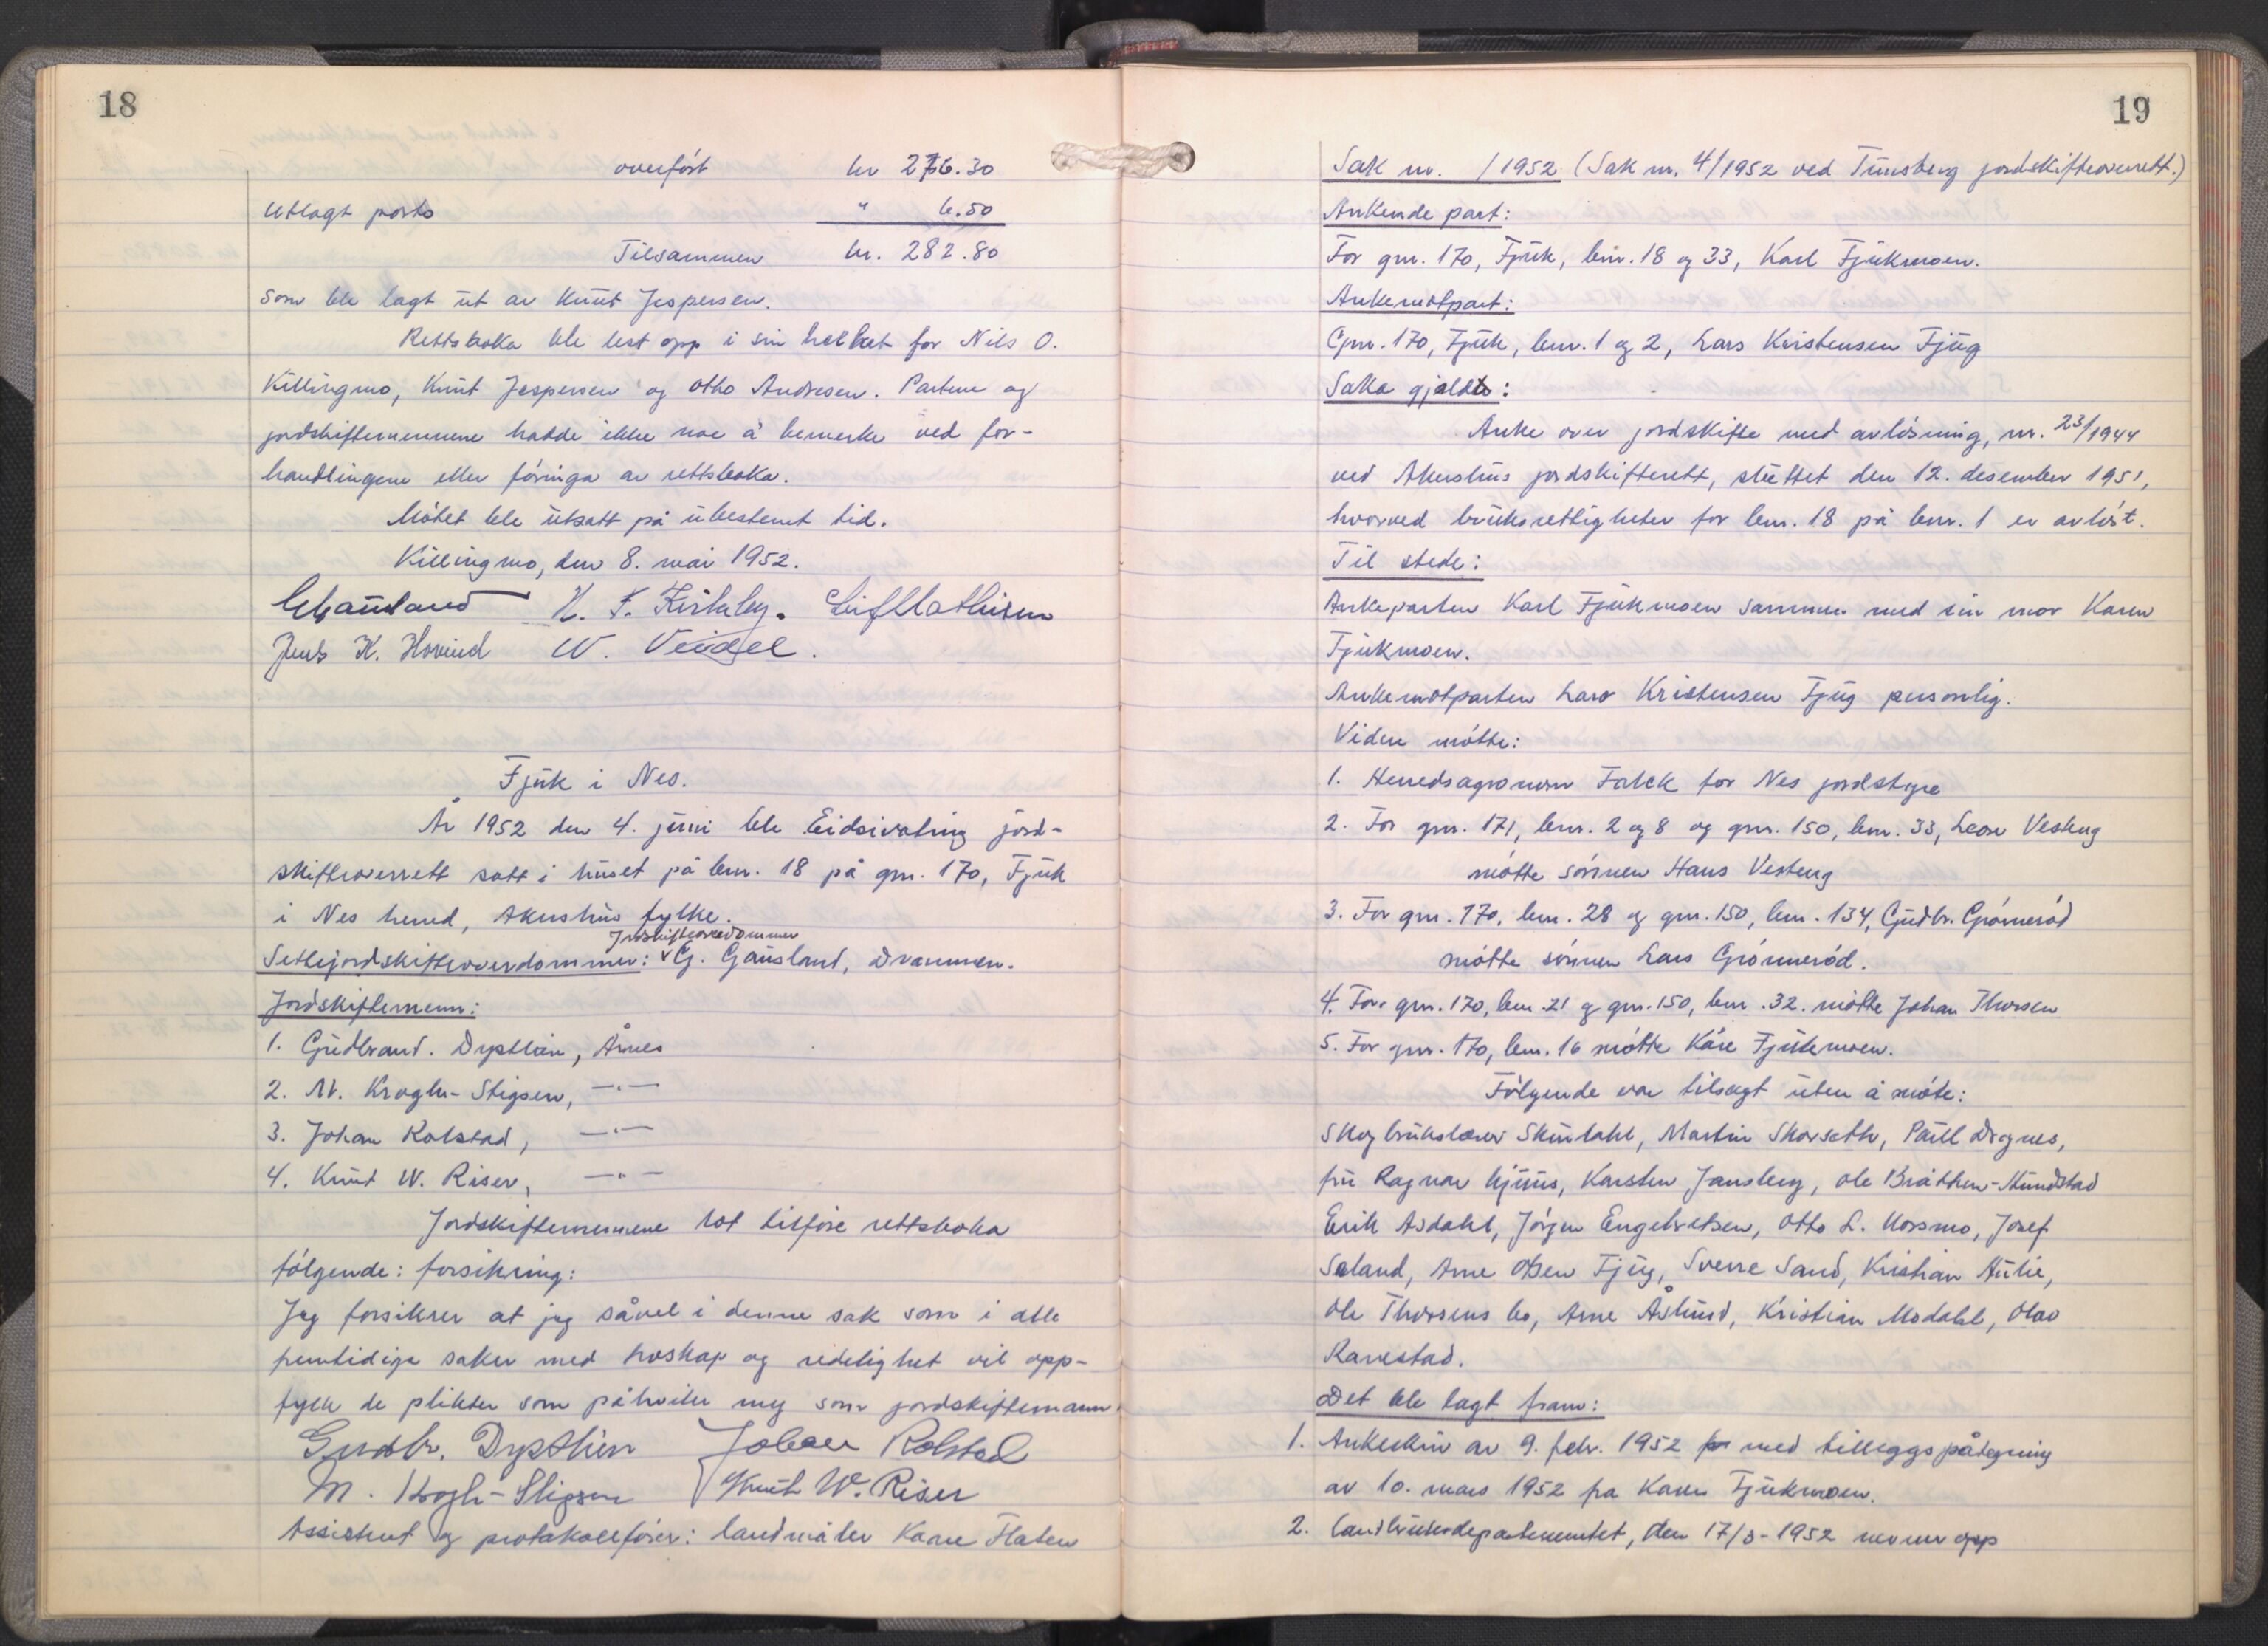 18
overført kr 276.30
Utlagt porto " 6.50
Tilsammen kr. 282.80
som ble lagt ut av Knut Jespersen.
Rettsboka ble lest opp i sin helhet for Nils O.
Killingmo, Knut Jespersen og Otto Andresen. Partene og
jordskiftemennene hadde ikke noe å bemerke ved for-
handlingene eller føringa av rettsboka.
Møtet ble utsatt på ubestemt tid.
Killingmo, den 8. mai 1952.
GGausland H. F. Kirkeby. Leif Mathisen
Jens K. Hovind W. Veidel.
Fjuk i Nes.
År 1952 den 4. juni ble Eidsivating jord-
skifteoverrett satt i huset på bnr. 18 på gnr. 170, Fjuk
i Nes herred, Akershus fylke.
Jordskifteoverdommer
Settejordskifteoverdommer: G. Gausland, Drammen.
Jordskiftemenn:
1. Gudbrand. Dysthien, Årnes
2. M. Krogh-Stigsen, —"—
3. Johan Rolstad, —"—
4. Knut W. Riser, —"—
Jordskiftemennene lot tilføre rettsboka
følgende: forsikring:
Jeg forsikrer at jeg såvel i denne sak som i alle
fremtidige saker med troskap og redelighet vil opp-
fylle de plikter som påhviler meg som jordskiftemann.
Gudbr. Dysthien Johan Rolstad
M. Krogh-Stigsen Knut W. Riser
Assistent og protokollfører: landmåler Kaare Flaten
19
Sak nr. /1952 (Sak nr. 4/1952 ved Tunsberg jordskifteoverrett.)
Ankende part:
For gnr. 170, Fjuk, bnr. 18 og 33, Karl Fjukmoen.
Ankemotpart:
Gnr. 170, Fjuk, bnr. 1 og 2, Lars Kristensen Fjug
Saka gjelder:
Anke over jordskifte med avløsning, nr. 23/1944
ved Akershus jordskifterett, sluttet den 12. desember 1951,
hvorved bruksrettigheter for bnr. 18 på bnr. 1 er avløst.
Til stede:
Ankeparten Karl Fjukmoen sammen med sin mor Karen
Fjukmoen.
Ankemotparten Lars Kristensen Fjug personlig.
Videre møtte:
1. Herredsagronom Falck for Nes jordstyre
2. For gnr. 171, bnr. 2 og 8 og gnr. 150, bnr. 33, Leon Vesteng
møtte sønnen Hans Vesteng
3. For gnr. 170, bnr. 28 og gnr. 150, bnr. 134, Gudbr. Grønnerød
møtte sønnen Lars Grønnerød.
4. For gnr. 170, bnr. 21 og gnr. 150, bnr. 32. møtte Johan Thorsen
5. For gnr. 170, bnr. 16 møtte Kåre Fjukmoen.
Følgende var tilsagt uten å møte:
Skogbrukslærer Skurdahl, Martin Skorseth, Paul Dragnes,
fru Ragnar Hjuus, Karsten Jansberg, Ole Bråthen-Hundstad
Erik Asdahl, Jørgen Engebretsen, Otto L. Korsmo, Josef
Søland, Arne Olsen Fjug, Sverre Sand, Kristian Hulie,
Ole Thorsens bo, Arne Åslund, Kristian Modahl, Olav
Ranestad.
Det ble lagt fram:
1. Ankeskriv av 9. febr. 1952 med tilleggspåtegning
av 10. mars 1952 fra Karen Fjukmoen.
2. Landbruksdepartementet, den 17/3-1952 nevner opp